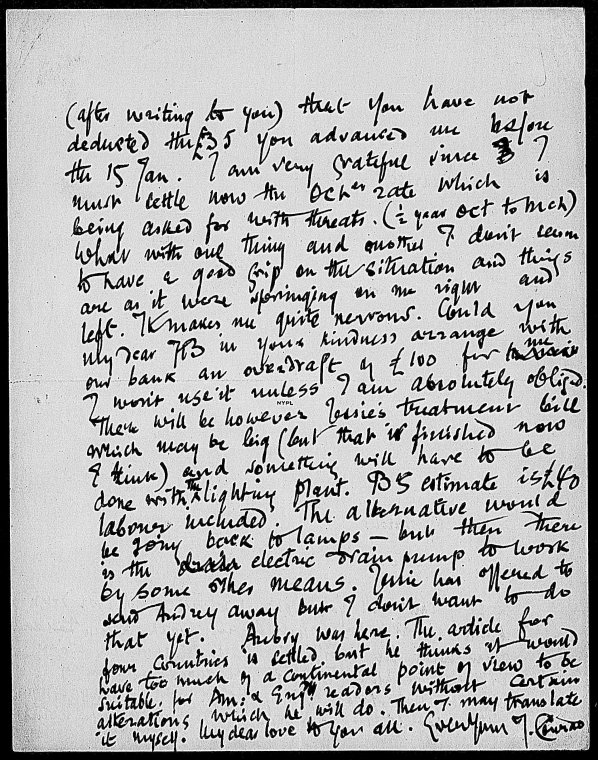 (after writing to you) that you have not
deducted the £35 you advanced me before
the 15 Jan. I am very grateful since I
must settle now the Octer rate which is
being asked for with threats. (½ year Oct to Mch)
What with one thing and another I don't seem
to have a good grip on the situation and things
are as it were springing on me right and
left. It makes me quite nervous. Could you
my dear JB in your kindness arrange with
our bank an overdraft of £100 for me
I won't use it unless I am absolutely obliged.
NYPL
There will be however Jessie's treatment bill
which may be big (but that is finished now
I think) and something will have to be
done with the lighting plant. B'S estimate is £40
labour included. The alternative would
be going back to lamps — but then there
is the electric drain pump to work
by some other means. Jessie has offered to
send Audrey away but I don't want to do
that yet. Aubry was here. The article for
four Countries is settled but he thinks it would
have too much of a continental point of view to be
suitable for Am: & Engsh readers without certain
alterations which he will do. Then I may translate
it myself. My dear love to you all. Ever Yours J. Conrad